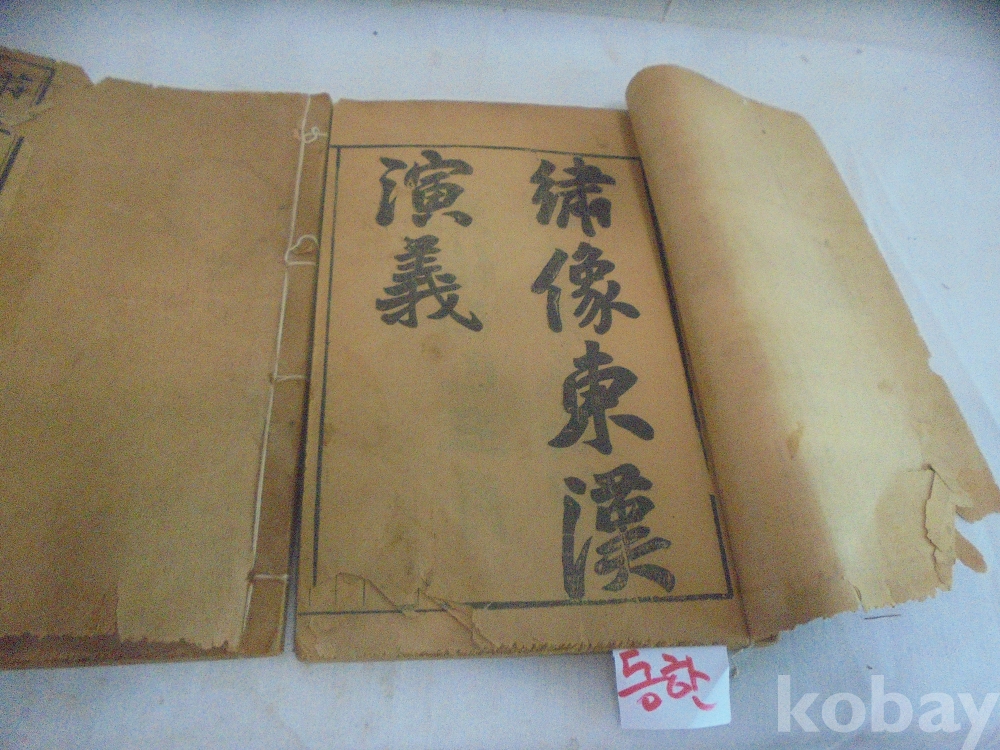 繡像東漢
演義
동한
kobay